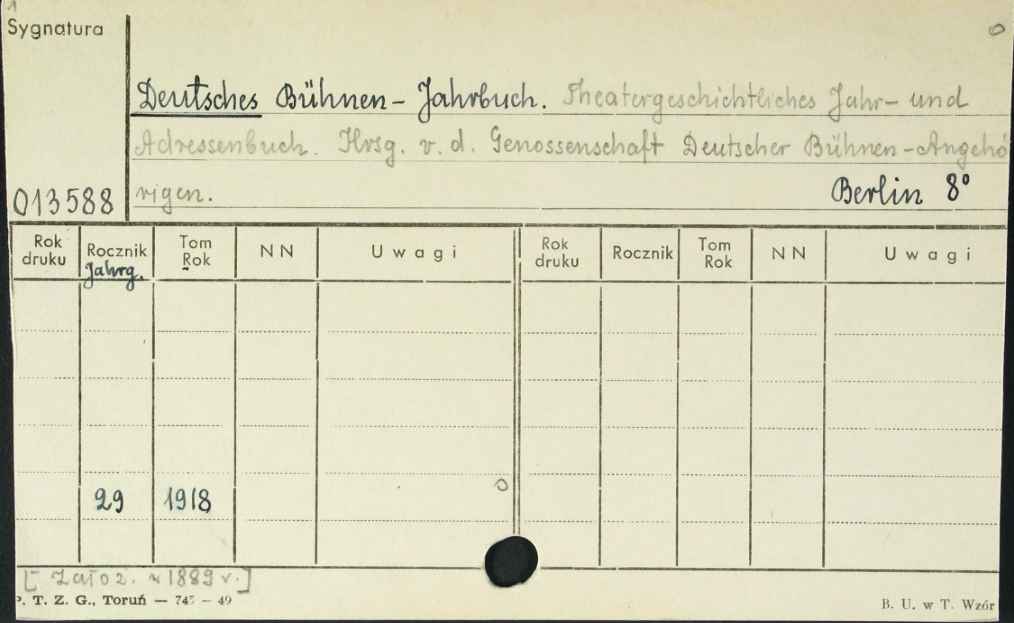 Sygnatura
Deutsches Bühnen-Jahrbuch. Theatergeschichtliches Jahr- und
Adressenbuch. Hrsg. v. d. Genossenschaft Deutscher Bühnen-Angehö
013588 rigen. Berlin 8°
Rok druku Rocznik Tom Rok NN Uwagi Rok druku Rocznik Tom Rok NN Uwagi
Jahrg.
29 1918
[Założ. w 1889 r.]
P. T. Z. G., Toruń — 745 — 49 B. U. w T. Wzór